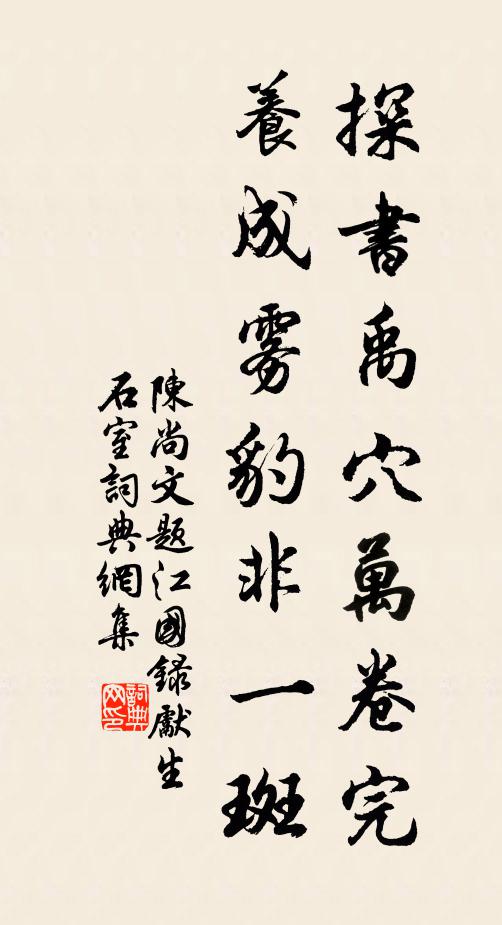 探書禹穴萬卷完
養成雾豹非一斑
陳尚文題江國録獻生
石室詞典網集
詞典网印